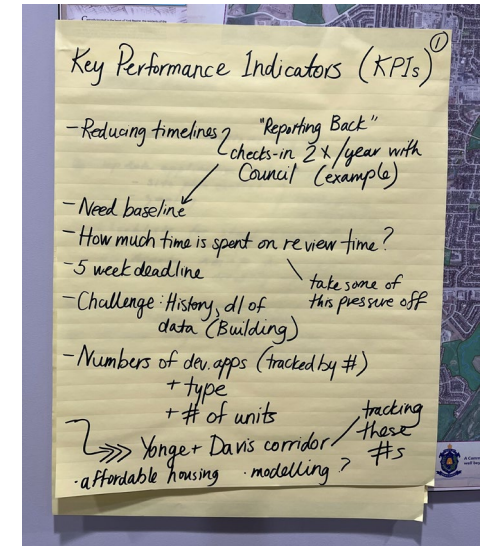 ①
Key Performance Indicators (KPIs)
- Reducing timelines? "Reporting Back"
checks-in 2x/year with
Council (example)
- Need baseline
- How much time is spent on review time?
- 5 week deadline
take some of
this pressure off
- Challenge: History, dl of
data (Building)
- Numbers of dev. apps (tracked by #)
+ type
+ # of units
Yonge + Davis corridor / tracking
these
#s
· affordable housing · modelling?